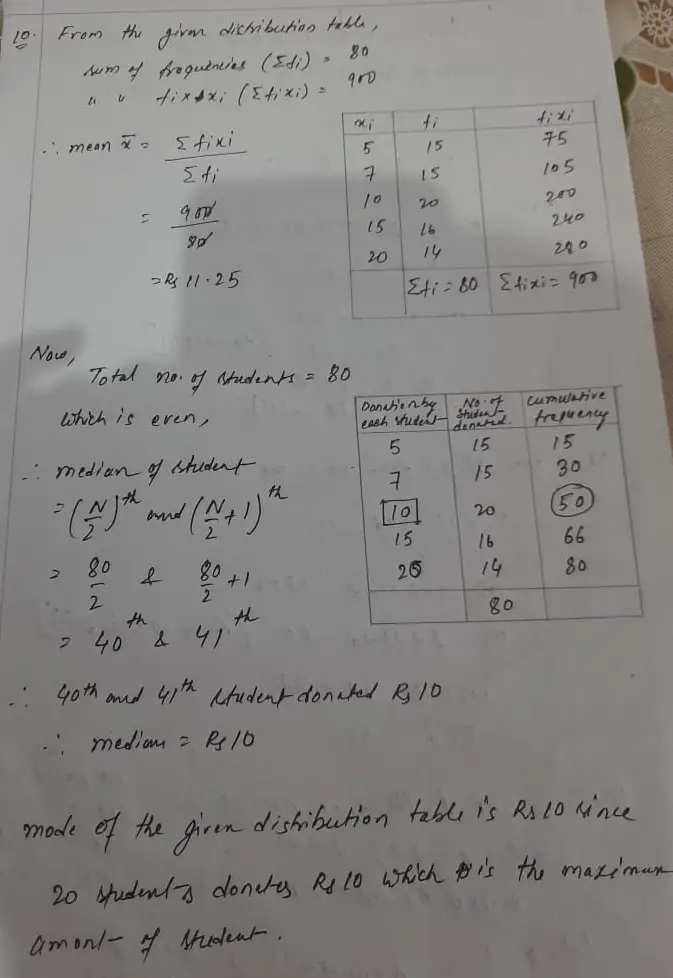 10. From the given distribution table,
sum of frequencies (Σfi) = 80
" " fi x xi (Σfixi) = 900
∴ mean x̄ = Σfixi / Σfi
= 900 / 80
= Rs 11.25
xi fi fixi
5 15 75
7 15 105
10 20 200
15 16 240
20 14 280
Σfi = 80 Σfixi = 900
Now,
Total no. of students = 80
which is even,
∴ median of student
= (N/2)th and (N/2 + 1)th
= 80/2 & 80/2 + 1
= 40th & 41th
Donation by each student No. of student donated. cumulative frequency
5 15 15
7 15 30
10 20 50
15 16 66
20 14 80
80
∴ 40th and 41th student donated Rs 10
∴ median = Rs 10
mode of the given distribution table is Rs 10 since
20 students donates Rs 10 which is the maximum
amont of student.